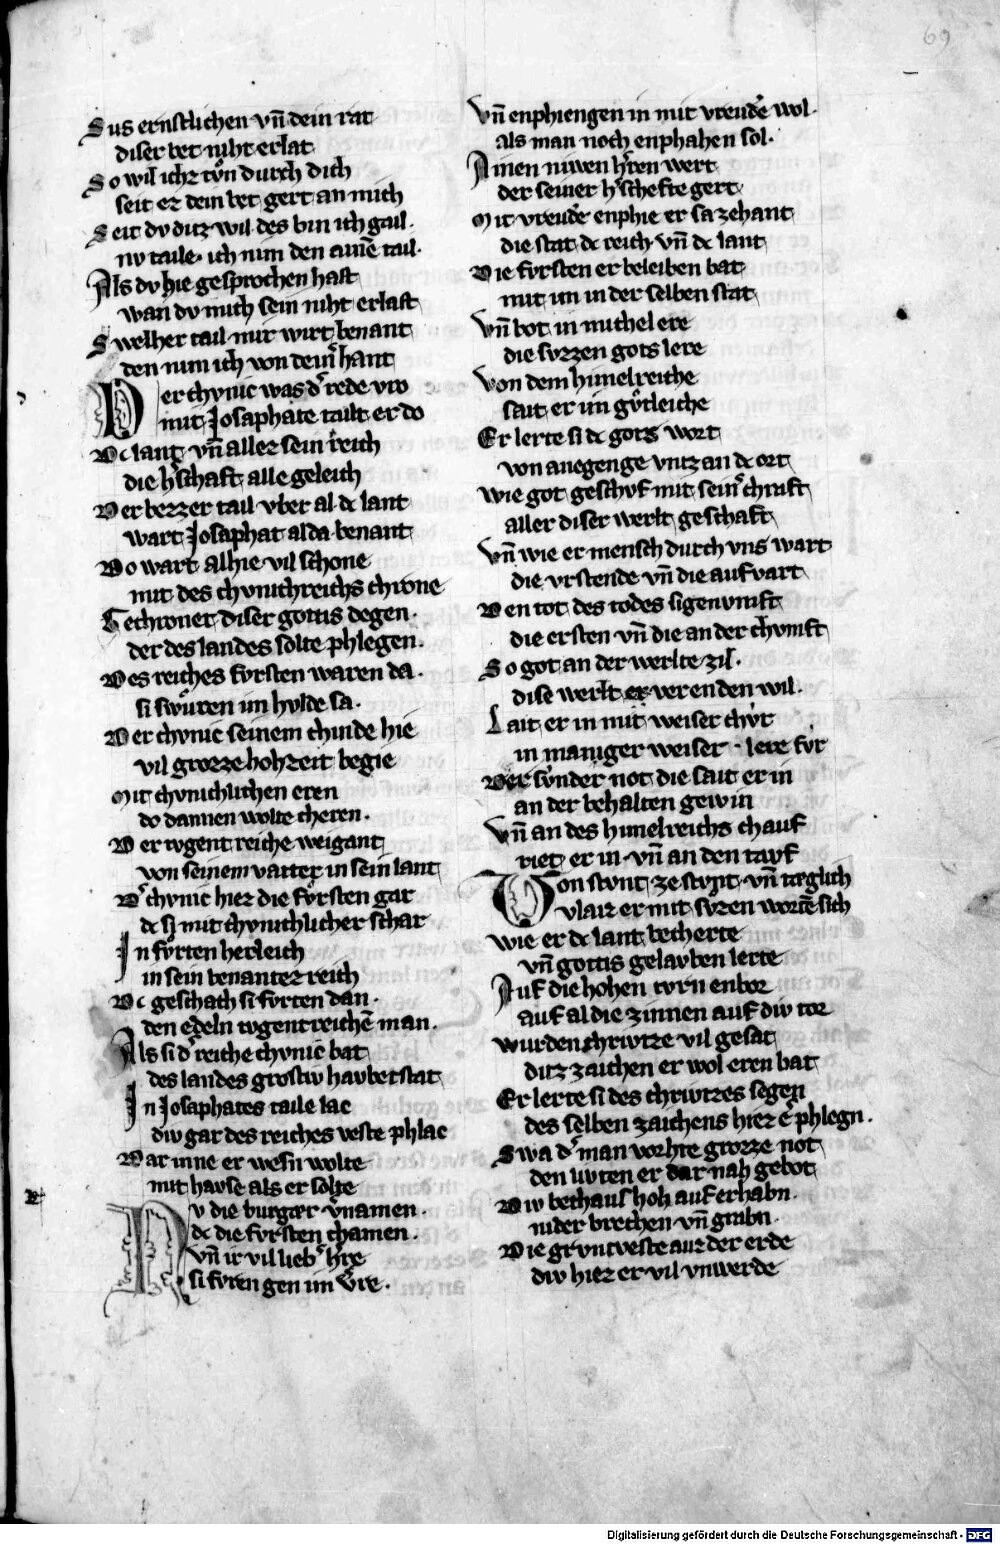 69
Sus ernstlichen vn̄ dein rat
diser bet niht erlat
So wil ichz tv̊n durch dich
seit ez dein bet gert an mich
Seit dv ditz wil des bin ich gail.
nv taile ich nim den ainē tail.
Als dv hie gesprochen hast
wan dv mich sein niht erlast
Swelher tail mir wirt benant
den nim ich von deim̾ hant
Der chvnic was d̾ rede vro
mit Josaphate tailt er do
Dc lant vn̄ allez sein reich
die h̾schaft alle geleich
Der bezzer tail vber al dc lant
wart Josaphat alda benant
Do wart alhie vil schone
mit des chvnichreichs chrone
Gechronet diser gottis degen.
der des landes solte phlegen.
Des reiches fvrsten waren da.
si swůren im hvlde sa.
Der chvnic seinem chinde hie
vil grozze hohzeit begie
Mit chvnichlichen eren
do dannen wolte cheren.
Der tvgent reiche weigant
von seinem vatter in sein lant
D̾ chvnic hiez die fv̊rsten gar
dc si mit chvnichlicher schar
In fv̊rten herleich
in sein benantez reich
Dc geschach si fvrten dan.
den edeln tvgentreichē man.
Als si d̾ reiche chvnic bat
des landes grostiv havbetstat
In Josaphates taile lac
div gar des reiches veste phlac
Dar inne er wesn wolte
mit havse als er solte
Nv die burgær v̾namen.
dc die fvrsten chamen.
vn̄ ir vil lieb̾ h̾re
si fv̊ren gen im v̾re.
Vn̄ enphiengen in mit vreudē wol.
als man noch enphahen sol.
Ainen niwen h̾ren wert
der seiner h̾schefte gert
Mit vreudē enphie er sa zehant
die stat dc reich vn̄ dc lant
Die fvrsten er beleiben bat
mit im in der selben stat
Vn̄ bot in michel ere
die svzzen gots lere
Von dem himelreiche
sait er im gv̊tleiche
Er lerte si dc gots wort
von anegenge vntz an dc ort
Wie got geschvf mit sein̾ chraft
aller diser werlt geschaft
Vn̄ wie er mensch durch vns wart
die vrstende vn̄ die aufvart
Den tot des todes sigenvmft
die ersten vn̄ die ander chvmft
So got an der werlte zil.
dise werlt er verenden wil.
Lait er in mit weiser chv̊r
in maniger weiser lere fvr
Der svnder not die sait er in
an der behalten gewin
Vn̄ an des himelreichs chauf
riet er in vn̄ an den tauf
Von stvnt ze stvnt vn̄ tæglich
vlaiz er mit sv̊zen wortē sich
Wie er dc lant becherte
vn̄ gottis gelavben lerte
Auf die hohen tvrn enbor
auf al die zinnen auf div tor
Wurden chrivtze vil gesat
ditz zaichen er wol eren bat
Er lerte si des chrivtzes segen
des selben zaichens hiez er phlegn.
Swa d̾ man vorhte grozze not
den livten er dar nah gebot
Div bethaus hoh auf erhabn.
nider brechen vn̄ grabn.
Die grvntveste auz der erde
div hiez er vil vnwerde
Digitalisierung gefördert durch die Deutsche Forschungsgemeinschaft - DFG